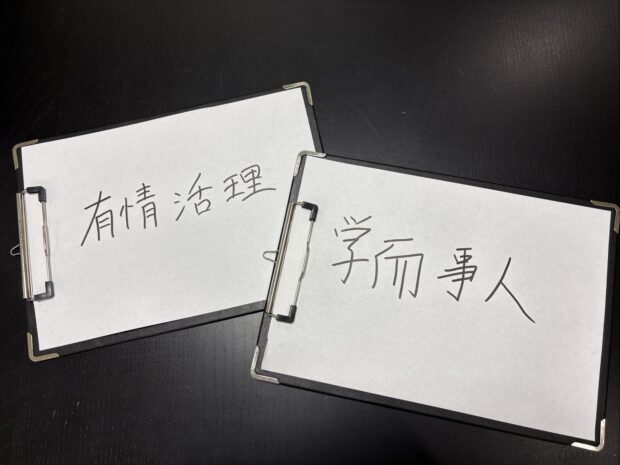 有情活理
学而事人